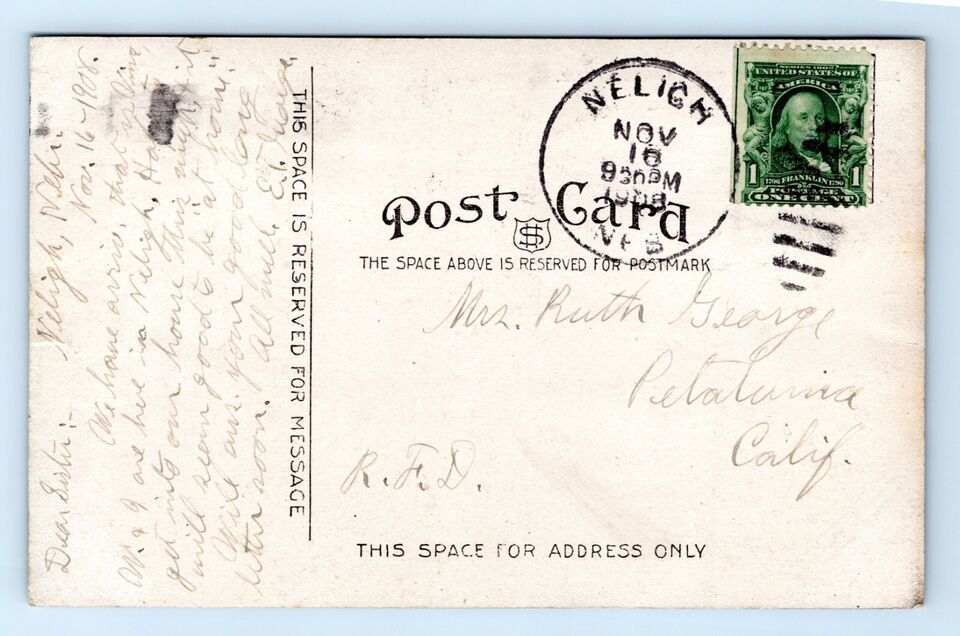 Neligh, Nebr.
Nov. 16-1908.
Dear Sister:-
We have arriv. that
W. & I are here in Neligh. Have to
get into our house this night, it
will seem good to be at home"
Will ans. your good long
letter soon. All well.
THIS SPACE IS RESERVED FOR MESSAGE
NELIGH
NOV
16
930PM
1908
NEB
SERIES 1902
UNITED STATES OF
AMERICA
1
1
FRANKLIN
POSTAGE
ONE CENT
Post Card
THE SPACE ABOVE IS RESERVED FOR POSTMARK
Mrs. Ruth George
Petaluma
Calif.
R.F.D.
THIS SPACE FOR ADDRESS ONLY